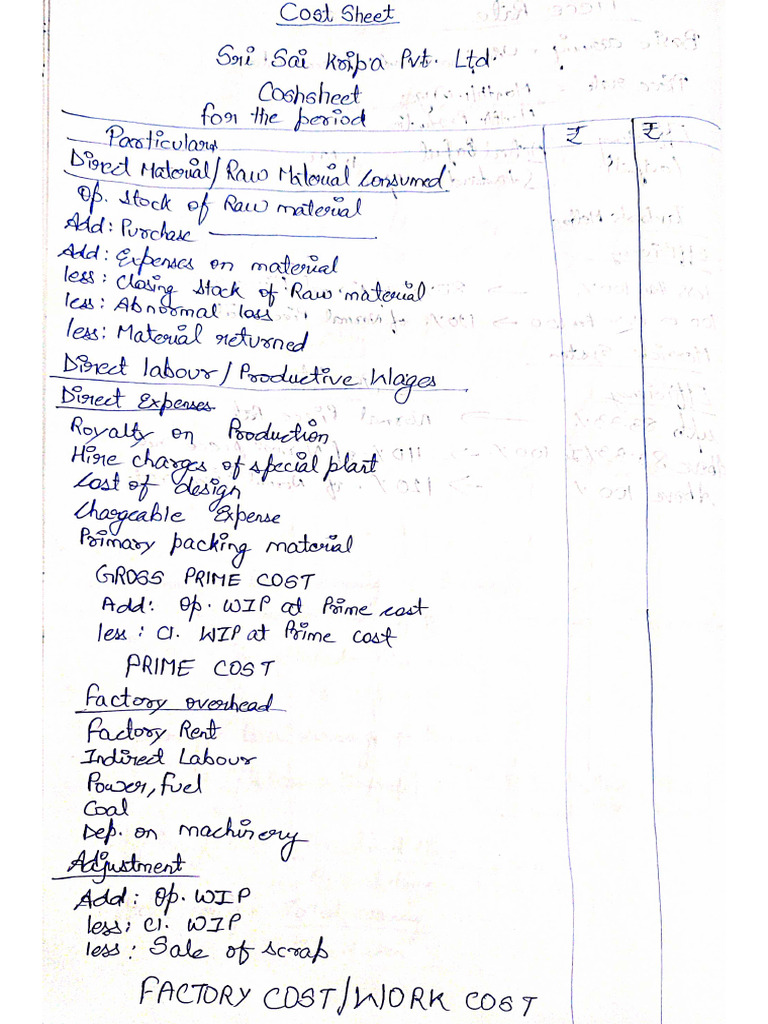 Cost Sheet
Sri Sai Kripa Pvt. Ltd.
Coshsheet
for the period
Particulars ₹ ₹
Direct Material/Raw Material Consumed
Op. Stock of Raw material
Add: Purchase
Add: Expenses on material
less: Closing stock of Raw material
less: Abnormal loss
less: Material returned
Direct labour/Productive Wages
Direct Expenses
Royalty on Production
Hire charges of special plant
Cost of design
Chargeable Expense
Primary packing material
GROSS PRIME COST
Add: Op. WIP at Prime cost
less: Cl. WIP at Prime cost
PRIME COST
Factory overhead
Factory Rent
Indirect Labour
Power, fuel
Coal
Dep. on machinery
Adjustment
Add: Op. WIP
less: Cl. WIP
less: Sale of scrap
FACTORY COST/WORK COST